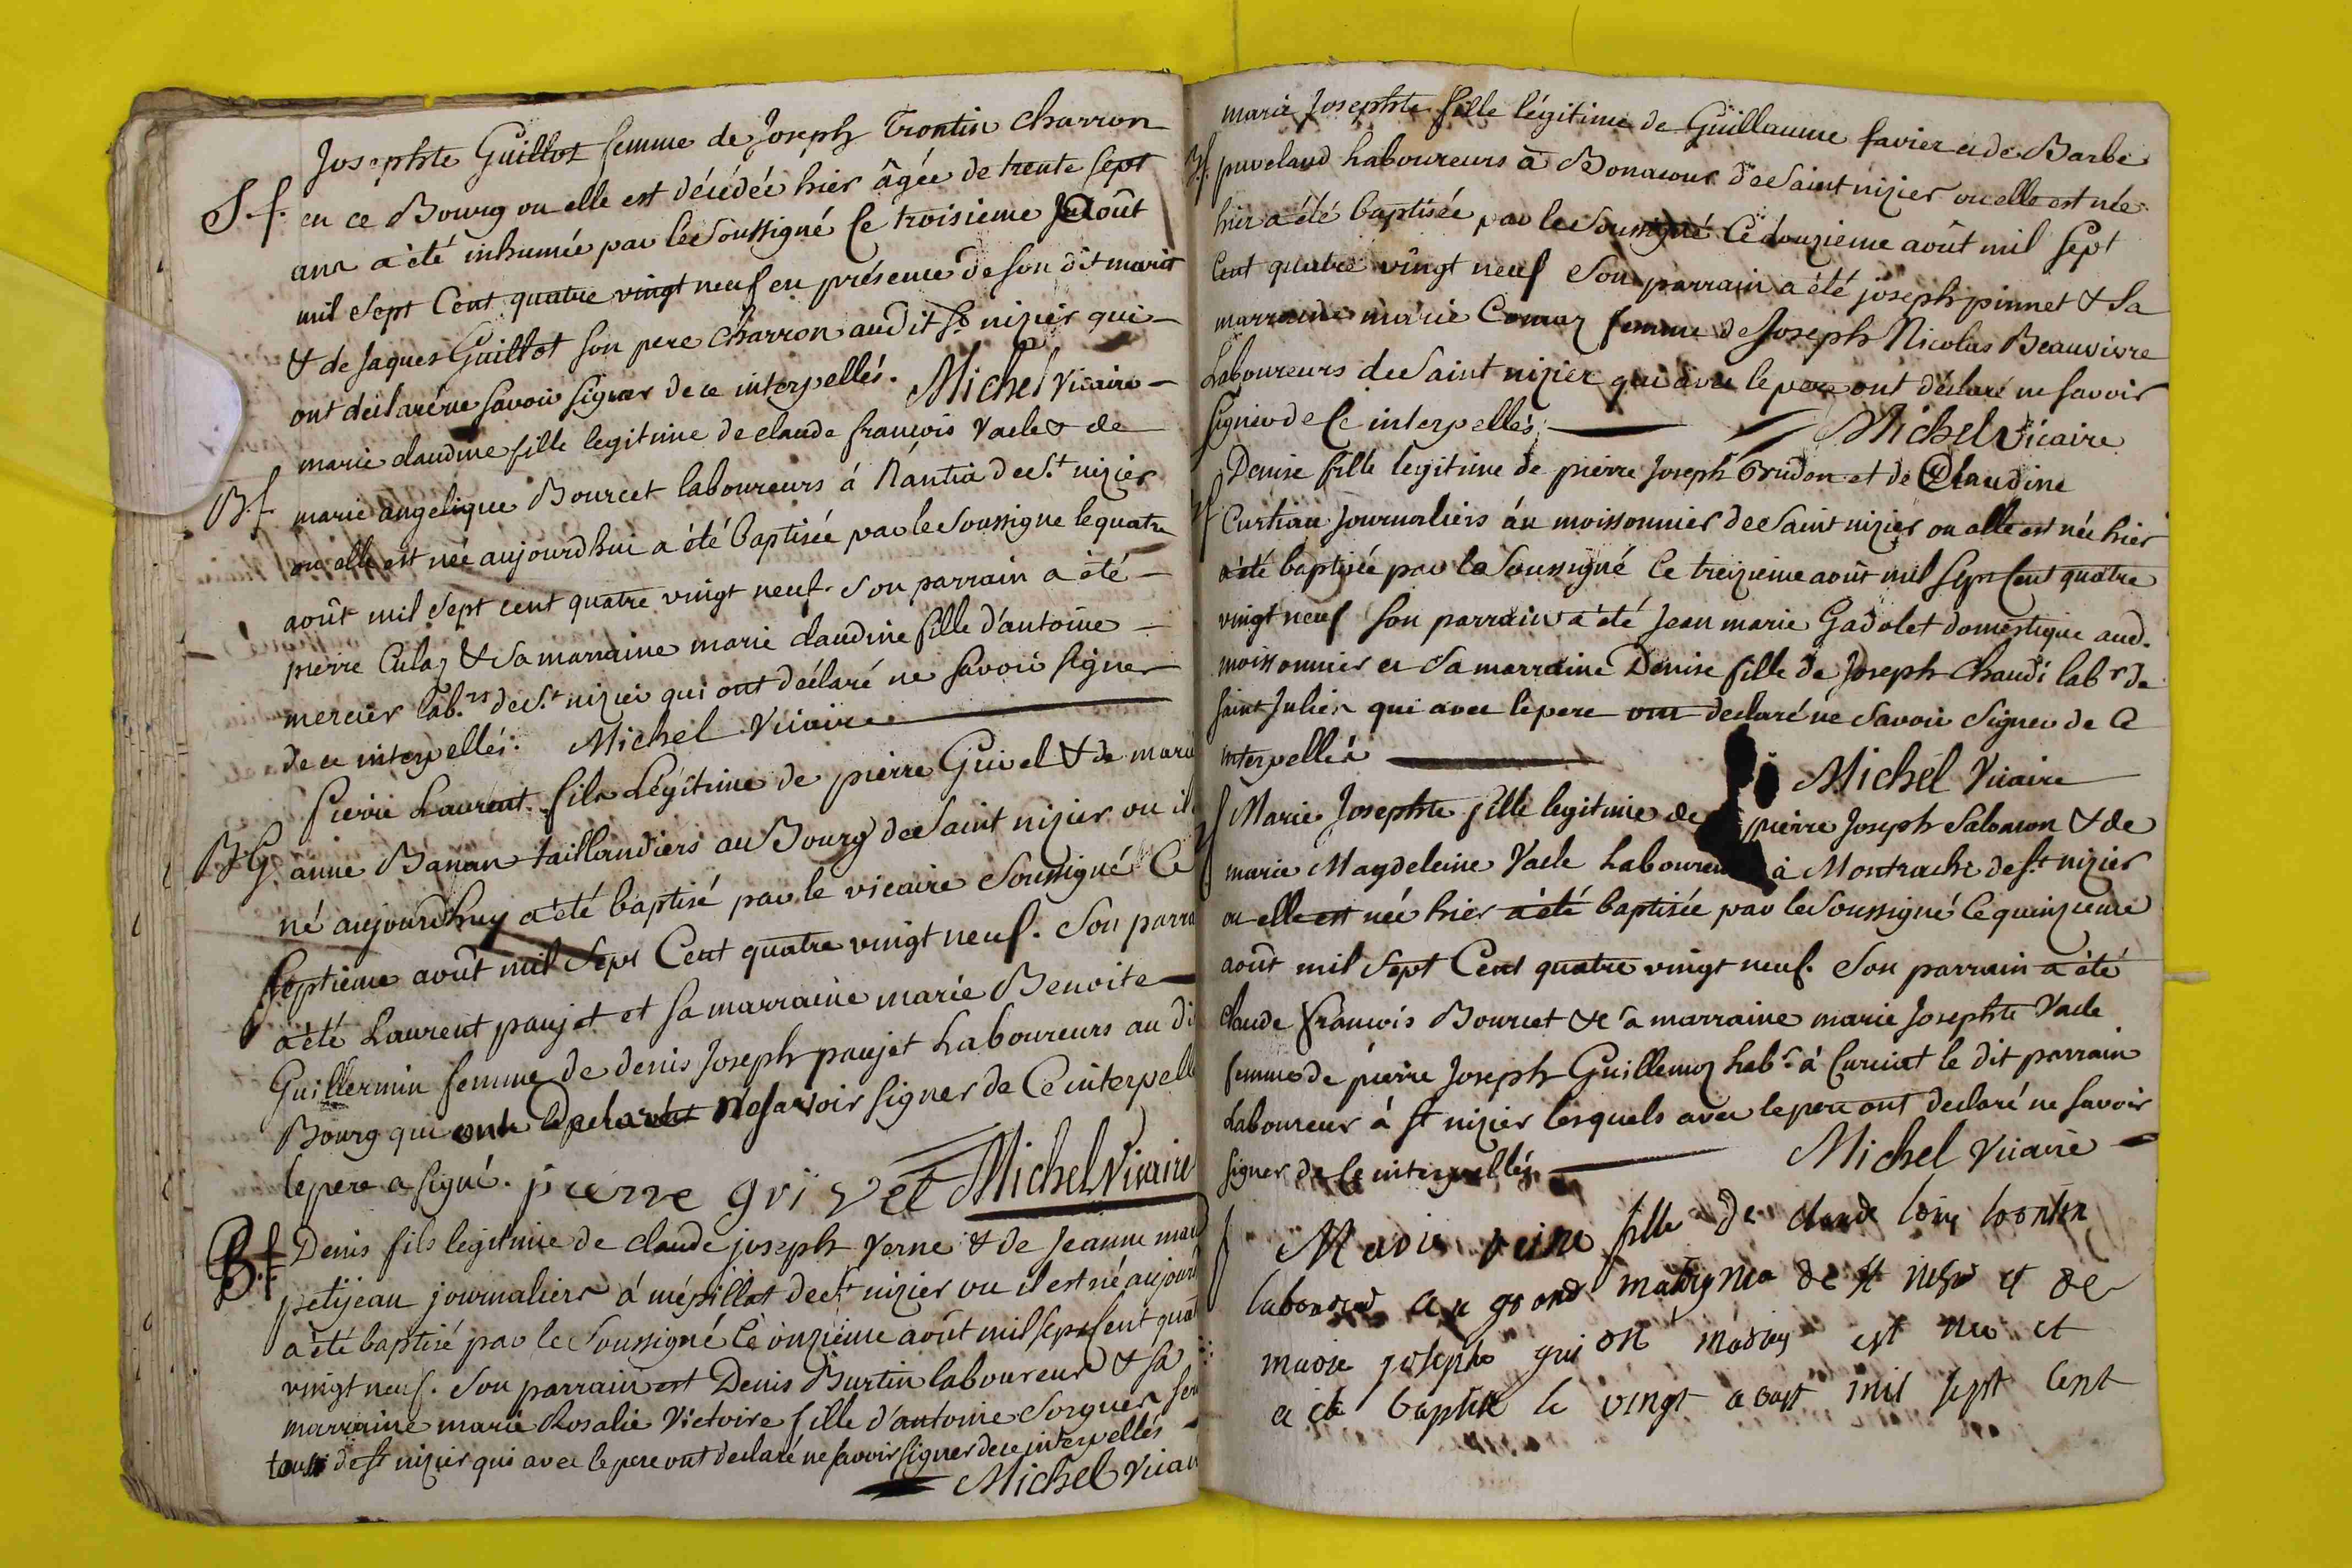 Josephte Guillot femme de Joseph Trontin charron
S. f. en ce Bourg ou elle est décédée hier âgée de trente sept
ans a été inhumée par le Soussigné Ce troisieme Août
mil Sept Cent quatre vingt neuf en présence de son dit marit
& de Jaques Guillot son pere charron audit St nizier qui
ont déclaré ne savoir signer de ce interpellés. Michel vicaire
marie claudine fille legitime de claude françois Vacle & de
B. f. marie angelique Bourcet laboureurs á Nantia de St nizier
ou elle est née aujourdhui a été baptisée par le Soussigne le quatre
août mil Sept cent quatre vingt neuf. Son parrain a été
pierre Culaz & Sa marraine marie claudine fille d'antoine
mercier lab.rs de St nizier qui ont déclaré ne savoir signer
de ce interpellés. Michel Vicaire
pierre Laurent fils Légitime de pierre Grivel & de marie
B G anne Banan taillandiers au Bourg de Saint nizier ou il
né aujourdhuy a été baptisé par le vicaire Soussigné Ce
septieme août mil Sept Cent quatre vingt neuf. Son parra
a été Laurent paujet et sa marraine marie Benoite
Guillermin femme de denis Joseph paujet Laboureurs au di
Bourg qui ont Declaré ne savoir signer de Ce interpell
le pere a signé. pierre grivet Michel Vicaire
B. f Denis fils legitime de claude joseph Verne & de Jeanne mari
petijean journaliers á mépillat de St nizier ou il est né aujourd
a été baptisé par le Soussigné Ce onzieme août mil sept cent quat
vingt neuf. Son parrain est Denis Burtin laboureur & sa
marraine marie Rosalie Victoire fille d'antoine Sorguer
tous de st nizier qui avec le pere ont declaré ne savoir signer de ce interpellés
Michel Vicai
marie Josephte fille légitime de Guillaume favier et de Barbe
B f. puvelaud Laboureurs à Bonacour de Saint nizier ou elle est née
hier a été baptisée par le Soussigné Ce douzieme août mil Sept
Cent quatre vingt neuf Son parrain a été joseph pinnet & Sa
marraine marie Comaz femme de Joseph Nicolas Beauvivre
Laboureurs de Saint nizier qui avec le pere ont déclaré ne savoir
signer de Ce interpellés Michel Vicaire
Denise fille legitime de pierre Joseph Brudon et de Claudine
f Curtiau journaliers áu moissonnier de Saint nizier ou elle est née hier
a été baptisée par le Soussigné Ce treizieme août mil Sept Cent quatre
vingt neuf Son parrain a été Jean marie Gadolet domestique aud.
moissonnier et Sa marraine Denise fille de Joseph Chaudi labr de
saint Julien qui avec le pere ont declaré ne Savoir Signer de Ce
interpellés Michel Vicaire
f Marie Josephte fille legitime de pierre Joseph Salomon & de
marie Magdeleine Vacle Laboureu à Montrachi de St nizier
ou elle est née hier a été baptisée par le Soussigné Ce quinzieme
août mil Sept Cent quatre vingt neuf. Son parrain a été
claude françois Bourcet & Sa marraine marie Josephte Vacle
femme de pierre Joseph Guillemoz Labr à Curciat le dit parrain
Laboureur à St nizier lesquels avec le pere ont declaré ne savoir
signer de Ce interpellés Michel Vicaire
f Marie reine fille de claude
laboureur au grand de St et de
marie josephe est nee et
a été baptisé le vingt aoust mil sept cent